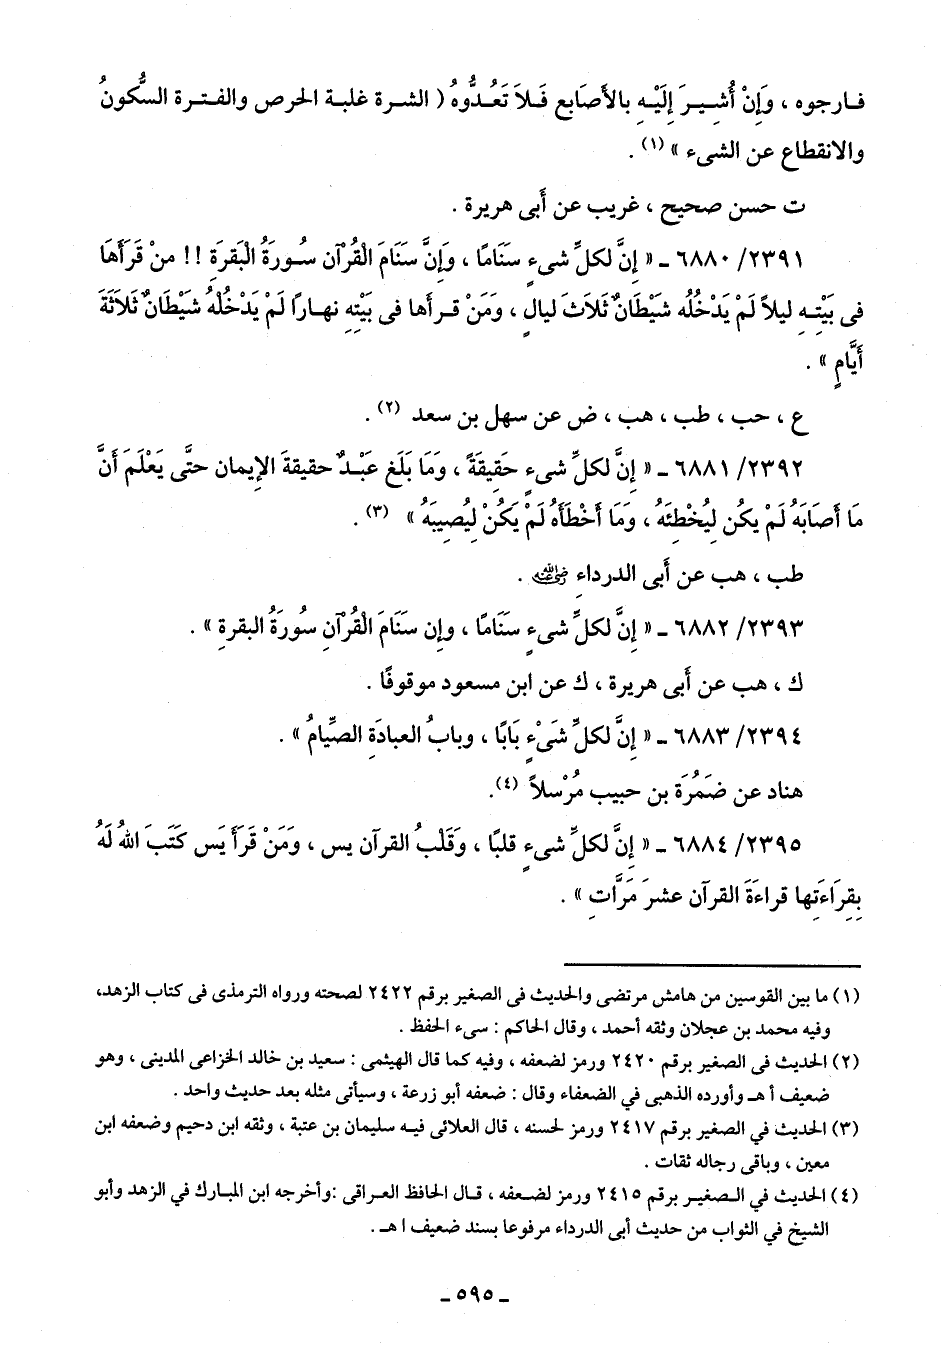 فـارجوه ، وَإِنْ أُشِيـرَ إِلَيْـهِ بالأَصَابِع فَـلاَ تَعُـدُّوهُ ( الشرة غلبـة الحرص والفتـرة السُّكونُ
والانقطاع عن الشىء » (١) .
ت حسن صحيح ، غريب عن أَبى هريرة .
٢٣٩١/ ٦٨٨٠ ـ « إِنَّ لكلِّ شىءٍ سَنَامًا ، وَإِنَّ سَنَامَ الْقُرْآن سُـورَةُ الْبَقرَةِ !! من قَرَأَهَا
فى بَيْتِـهِ ليلاً لَمْ يَدْخُلُه شَيْطَانٌ ثَلاَثَ ليالٍ ، وَمَنْ قـرأها فى بَيْتِه نهـارًا لَمْ يَدْخُلْهُ شَيْطَانٌ ثَلاَثَةَ
أَيَّامٍ » .
ع ، حب ، طب ، هب ، ض عن سهل بن سعد (٢) .
٢٣٩٢/ ٦٨٨١ ـ « إِنَّ لكلِّ شىءٍ حَقِيقَةً ، وَمَا بَلَغ عَبْـدٌ حقيقةَ الإِيمان حتَّى يَعْلَمَ أَنَّ
مَا أَصَابَهُ لَمْ يكُن لِيُخْطِئَهُ ، وَمَا أَخْطَأَهُ لَمْ يَكُنْ لِيُصِيبَهُ » (٣) .
طب ، هب عن أَبى الدرداءِ رضي الله عنه .
٢٣٩٣/ ٦٨٨٢ ـ « إِنَّ لكلِّ شىءٍ سَنَامًا ، وإِن سَنَامَ الْقُرْآنِ سُورَةُ البقرةِ » .
ك ، هب عن أَبى هريرة ، ك عن ابن مسعود موقوفًا .
٢٣٩٤/ ٦٨٨٣ ـ « إِنَّ لكلِّ شَىْءٍ بَابًا ، وبابُ العبادَةِ الصِّيامُ » .
هناد عن ضَمُرَة بن حبيب مُرْسلاً (٤).
٢٣٩٥/ ٦٨٨٤ ـ « إِنَّ لكلِّ شىءٍ قلبًا ، وَقَلْبُ القرآن يس ، وَمَنْ قَرَأَ يَس كَتَبَ اللهُ لَهُ
بِقِرَاءَتِها قراءَةَ القرآن عشرَ مَرَّاتِ » .
(١) ما بين القوسين من هامش مرتضى والحديث فى الصغير برقم ٢٤٢٢ لصحته ورواه الترمذى فى كتاب الزهد،
وفيه محمد بن عجلان وثقه أحمد ، وقال الحاكم : سىء الحفظ .
(٢) الحديث فى الصغير برقم ٢٤٢٠ ورمز لضعفه ، وفيه كما قال الهيثمى : سعيد بن خالد الخزاعى المدينى ، وهو
ضعيف أ هـ وأورده الذهبى في الضعفاء وقال : ضعفه أبو زرعة ، وسيأتى مثله بعد حديث واحد .
(٣) الحديث في الصغير برقم ٢٤١٧ ورمز لحسنه ، قال العلائى فيـه سليمان بن عتبة ، وثقه ابن دحيم وضعفه ابن
معين ، وباقى رجاله ثقات .
(٤) الحديث في الـصغيـر برقم ٢٤١٥ ورمز لضـعفه ، قـال الحافظ العـراقى :وأخرجه ابن المبـارك في الزهد وأبو
الشيخ في الثواب من حديث أبى الدرداء مرفوعا بسند ضعيف ا هـ .
ـ ٥٩٥ ـ